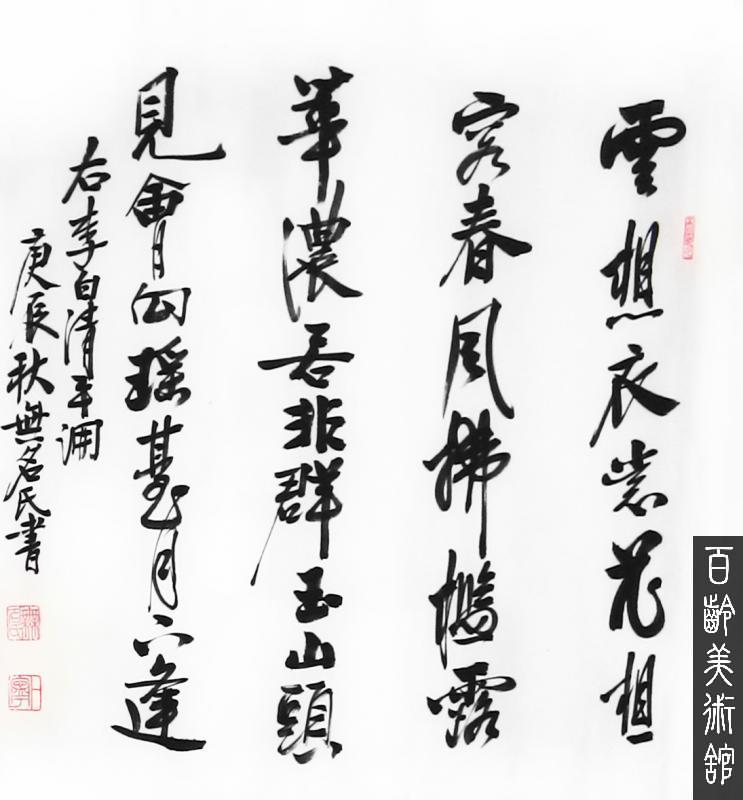 雲想衣裳花想
容春風拂檻露
華濃若非群玉山頭
見會向瑤臺月下逢
右李白清平調
庚辰秋無名氏書
百齡美術館